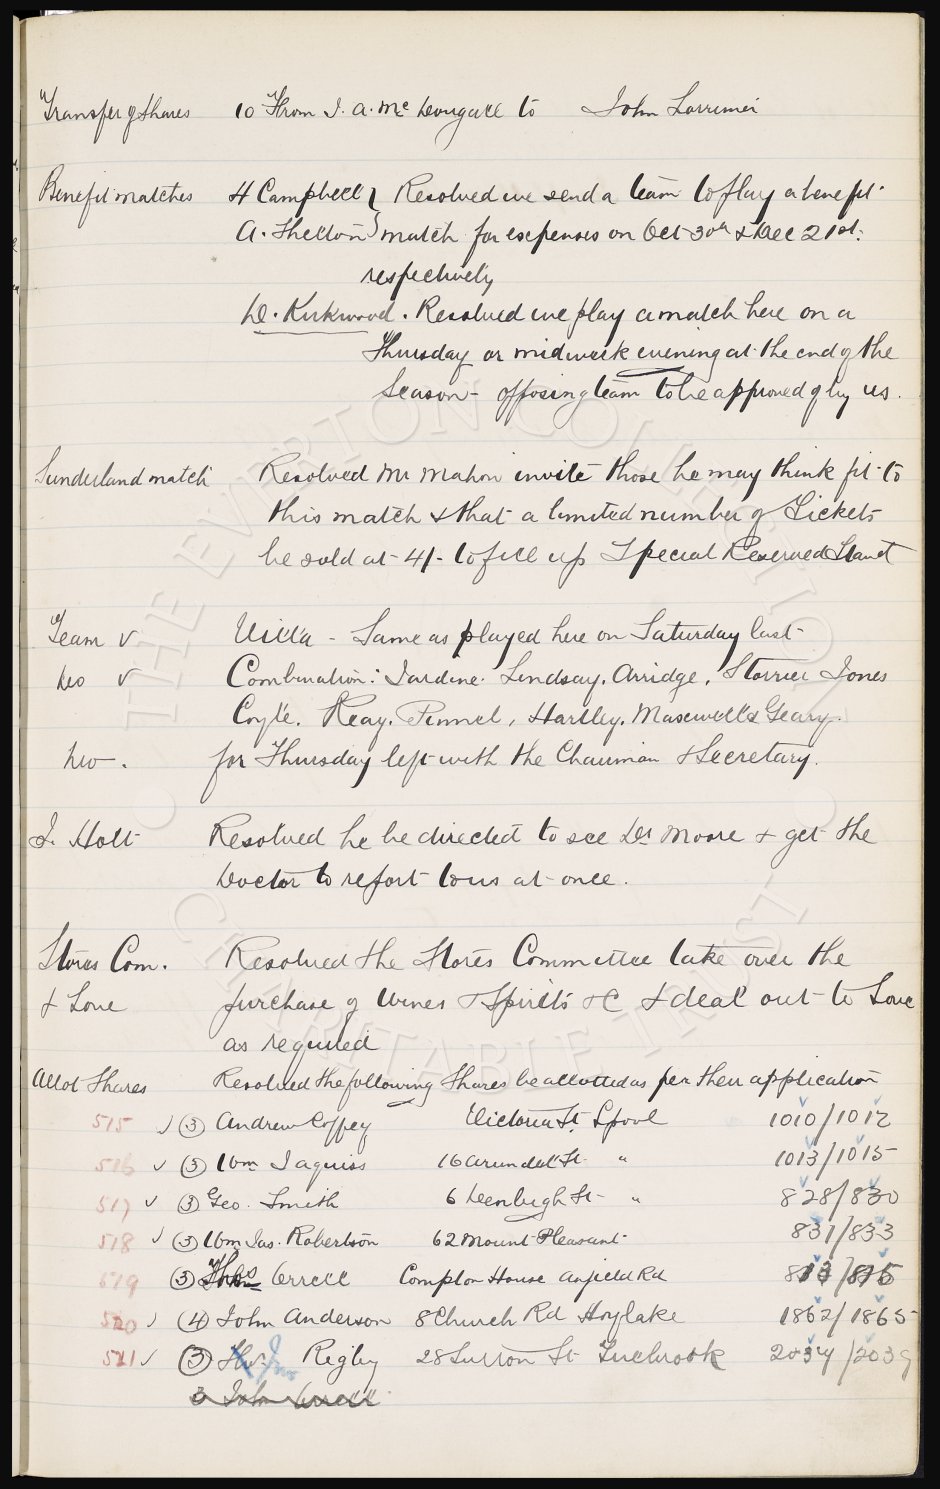 Transfer of Shares 10 From J. A. McDougall to John Lorrimer
Benefit matches H Campbell } Resolved we send a team to play a benefit
A. Shelton } match for expenses on Oct 30th & Dec 21st.
respectively
D. Kirkwood. Resolved we play a match here on a
Thursday or midweek evening at the end of the
Season - opposing team to be approved of by us.
Sunderland match Resolved Mr Mahon invite those he may think fit to
this match & that a limited number of Tickets
be sold at 4/- to fill up Special Reserved Stand
Team ✓ Villa - Same as played here on Saturday last
Do ✓ Combination: Jardine. Lindsay. Arridge. Storrier Jones
Coyle. Reay. Pinnel, Hartley. Maxwell & Geary.
Do. for Thursday left with the Chairman & Secretary.
J. Holt Resolved he be directed to see Dr Moore & get the
Doctor to report to us at once.
Stores Com. Resolved the Stores Committee take over the
& Love purchase of Wines & Spirits &c & deal out to Love
as required
Allot Shares Resolved the following Shares be allotted as per their application
515 ✓ (3) Andrew Coffey Victoria St. Lpool 1010/1012
516 ✓ (3) Wm Jaquiss 16 Arundel St. " 1013/1015
517 ✓ (3) Geo. Smith 6 Denbigh St " 828/830
518 ✓ (3) Wm Jas. Robertson 62 Mount Pleasant 831/833
519 (3) Errell Compton House Anfield Rd
520 ✓ (4) John Anderson 8 Church Rd Hoylake 1862/1865
521 ✓ (3) Jno Rigby 28 St Tuebrook
3 John Errell
THE EVERTON COLLECTION
CHARITABLE TRUST